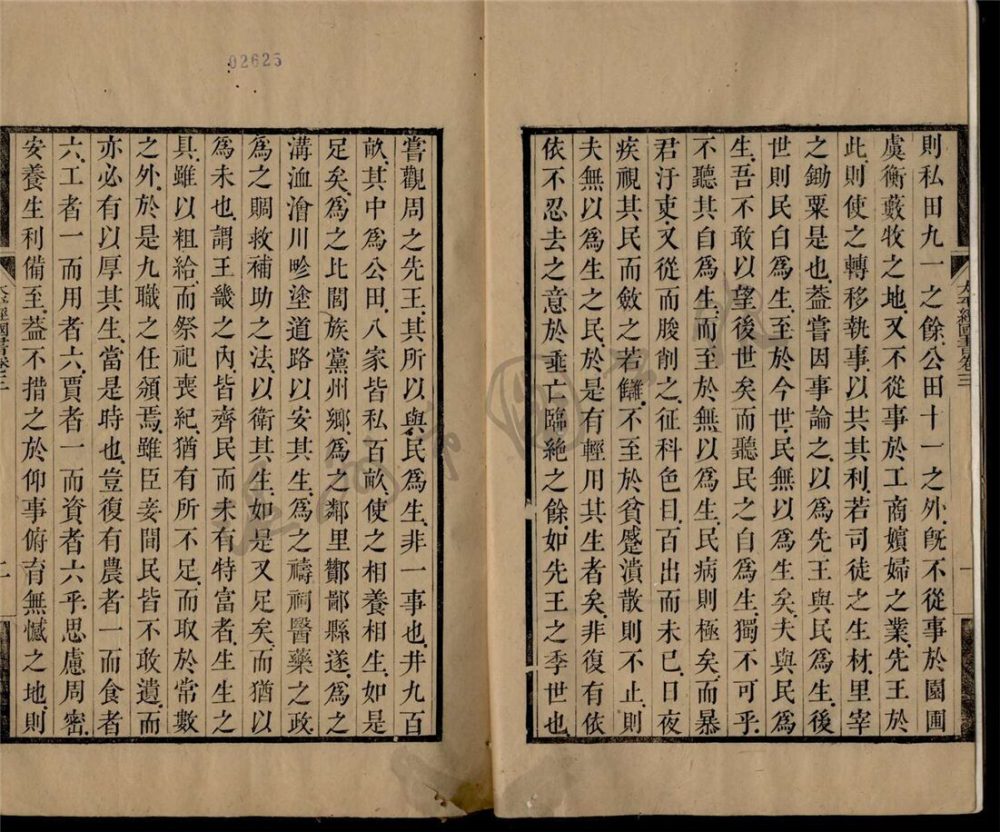 則私田九一之餘公田十一之外旣不從事於園圃
虞衡藪牧之地又不從事於工商嬪婦之業先王於
此則使之轉移執事以共其利若司徒之生材里宰
之鋤粟是也葢嘗因事論之以爲先王與民爲生後
世則民自爲生至於今世民無以爲生矣夫與民爲
生吾不敢以望後世矣而聽民之自爲生獨不可乎
不聽其自爲生而至於無以爲生民病則極矣而暴
君汙吏又從而朘削之征科色目百出而未已日夜
疾視其民而斂之若讎不至於貧蹙潰散則不止則
夫無以爲生之民於是有輕用其生者矣非復有依
依不忍去之意於垂亡臨絶之餘如先王之季世也
太平經國書卷三
一
02625
嘗觀周之先王其所以與民爲生非一事也井九百
畝其中爲公田八家皆私百畝使之相養相生如是
足矣爲之比閭族黨州鄉爲之鄰里酇鄙縣遂爲之
溝洫澮川畛塗道路以安其生爲之禱祠醫藥之政
爲之賙救補助之法以衛其生如是又足矣而猶以
爲未也謂王畿之內皆齊民而未有特富者生生之
具雖以粗給而祭祀喪紀猶有所不足而取於常數
之外於是九職之任頒焉雖臣妾間民皆不敢遺而
亦必有以厚其生當是時也豈復有農者一而食者
六工者一而用者六賈者一而資者六乎思慮周密
安養生利備至葢不措之於仰事俯育無憾之地則
太平經國書卷三